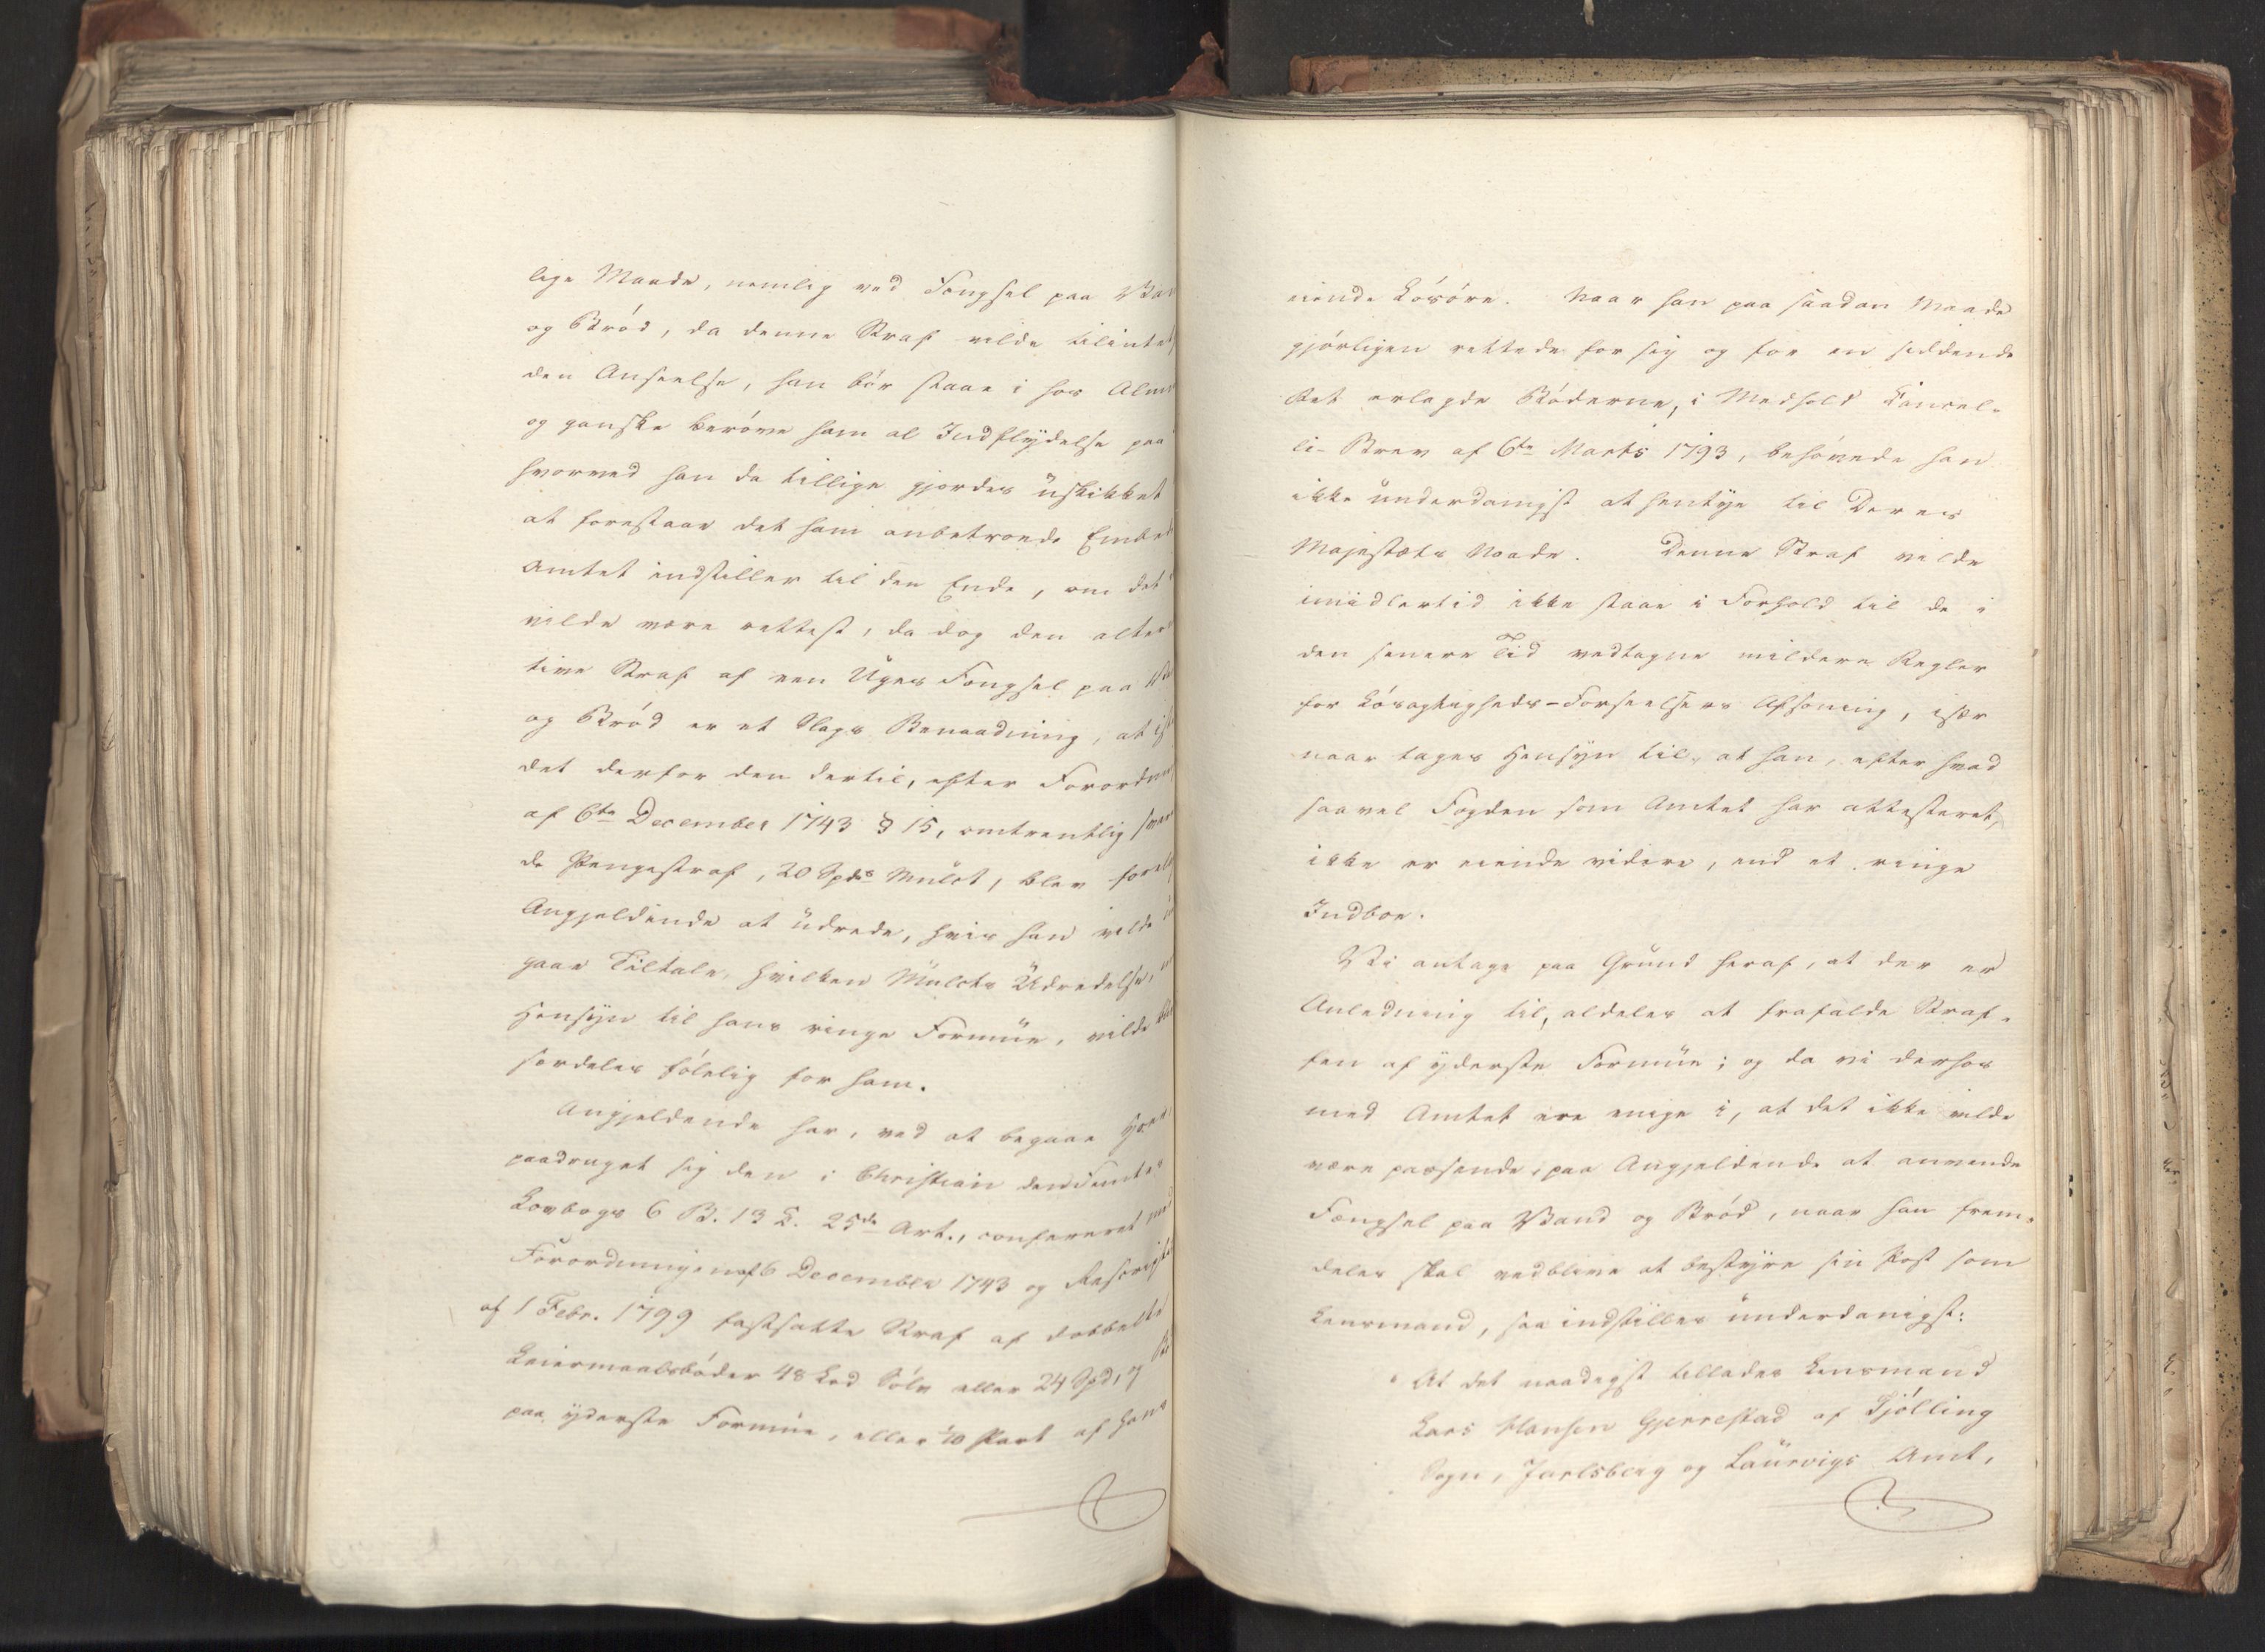 lige Maade, nemlig ved Fængsel paa Van
og Brød, da denne Straf vilde tilintet
den Anseelse, han bør staae i hos Alm
og ganske berøve ham al Indflydelse paa
hvorved han da tillige gjordes uskikket
at forestaae det ham anbetroede Embed
Amtet indstiller til den Ende, om det
vilde være rettest, da dog den alter
tive Straf af een Uges Fængsel paa Va
og Brød er et Slags Benaadning, at i
det derfor den dertil, efter Forordn
af 6te December 1743 § 15, omtrentlig svar
de Pengestraf, 20 Spds Mulct, blev forel
Angjeldende at udrede, hvis han vilde
gaae Tiltale, hvilken Mulcts Udredelse,
Hensyn til hans ringe Formue, vilde bli
særdeles følelig for ham.
Angjeldende har, ved at begaae Hoer
paadraget sig den i Christian den Femtes
Lovbogs 6 B. 13 C. 25de Art., confereret med
Forordningen af 6 December 1743 og Rescript
af 1 Febr. 1799 fastsatte Straf af dobbelte
Leiermaalsbøder 48 Lod Sølv eller 24 Spd, og B
paa yderste Formue, eller 1/10 Part af hans
eiende Løsøre. Naar han paa saadan Maade
gjørligen rettede for sig og for en siddende
Ret erlagde Bøderne, i Medhold Cancel-
li-Brev af 6te Marts 1793, behøvede han
ikke underdanigst at hentye til Deres
Majestæts Naade. Denne Straf vilde
imidlertid ikke staae i Forhold til de i
den senere Tid vedtagne mildere Regler
for Løsagtigheds-Forseelsers Afsoning, især
naar tages Hensyn til, at han, efter hvad
saavel Fogden som Amtet har attesteret,
ikke er eiende videre, end et ringe
Indboe.
Vi antage paa Grund heraf, at der er
Anledning til, aldeles at frafalde Straf-
fen af yderste Formue; og da vi derhos
med Amtet ere enige i, at det ikke vilde
være passende, paa Angjeldende at anvende
Fængsel paa Vand og Brød, naar han frem-
deles skal vedblive at bestyre sin Post som
Lensmand, saa indstilles underdanigst:
At det naadigst tillades Lensmand
Lars Hansen Gjerrestad af Tjølling
Sogn, Jarlsberg og Laurvigs Amt,